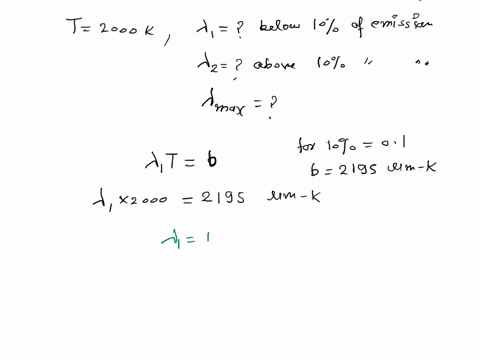 T = 2000 K, λ₁ = ? below 10% of emission
λ₂ = ? above 10% " "
λmax = ?
for 10% = 0.1
λ₁T = b
b = 2195 μm-K
λ₁ × 2000 = 2195 μm-K
λ₁ = 1